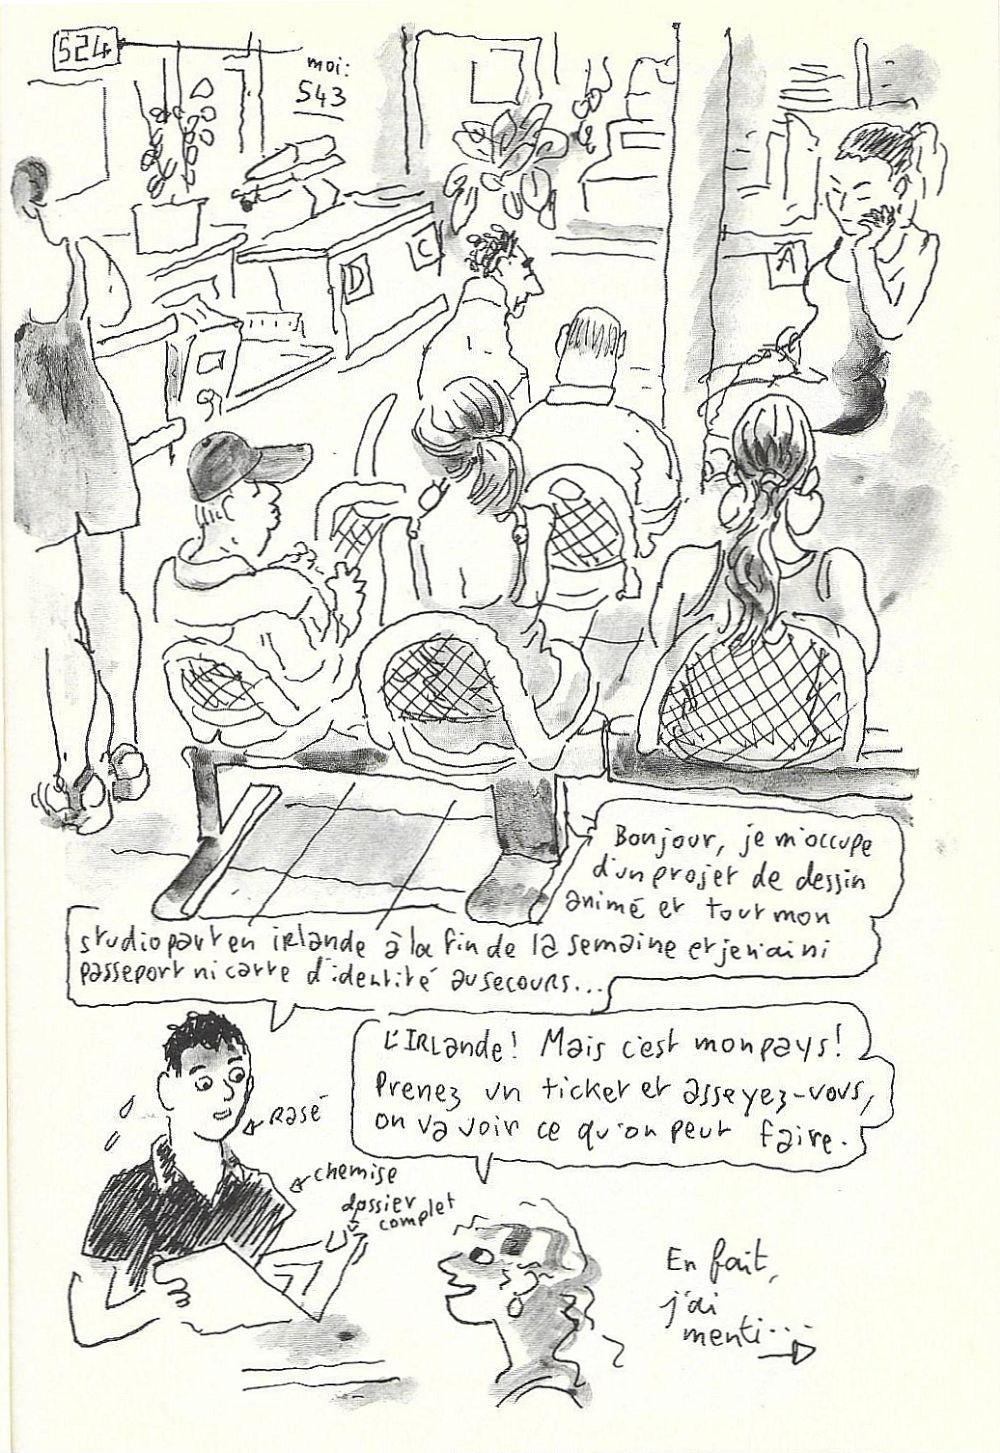 524
moi:
543
D
C
A
Bonjour, je m'occupe
d'un projet de dessin
animé et tout mon
studio part en irlande à la fin de la semaine et je n'ai ni
passeport ni carte d'identité au secours...
L'IRLande! Mais c'est mon pays!
Prenez un ticket et asseyez-vous,
on va voir ce qu'on peut faire.
RASÉ
chemise
dossier
complet
En fait,
j'ai
menti...